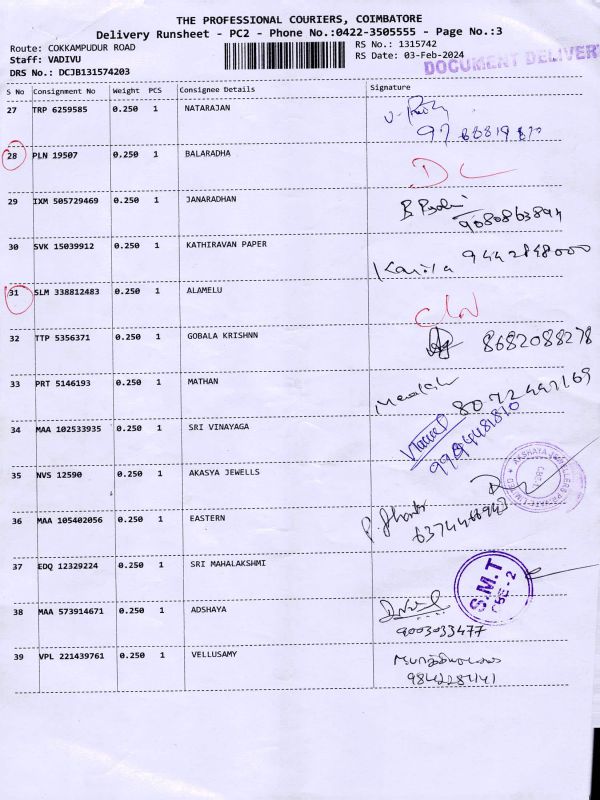 THE PROFESSIONAL COURIERS, COIMBATORE
Delivery Runsheet - PC2 - Phone No.:0422-3505555 - Page No.:3
Route: COKKAMPUDUR ROAD
Staff: VADIVU
DRS No.: DCJB131574203
RS No.: 1315742
RS Date: 03-Feb-2024
DOCUMENT DELIVER
S No Consignment No Weight PCS Consignee Details Signature
27 TRP 6259585 0.250 1 NATARAJAN
28 PLN 19507 0.250 1 BALARADHA
DL
29 IXM 505729469 0.250 1 JANARADHAN
9080863894
30 SVK 15039912 0.250 1 KATHIRAVAN PAPER
Kavita 9442848000
31 SLM 338812483 0.250 1 ALAMELU
32 TTP 5356371 0.250 1 GOBALA KRISHNN
8682088278
33 PRT 5146193 0.250 1 MATHAN
34 MAA 102533935 0.250 1 SRI VINAYAGA
35 NVS 12590 0.250 1 AKASYA JEWELLS
36 MAA 105402056 0.250 1 EASTERN
37 EDQ 12329224 0.250 1 SRI MAHALAKSHMI
S.M.T
CBE-2
38 MAA 573914671 0.250 1 ADSHAYA
9003033477
39 VPL 221439761 0.250 1 VELLUSAMY
9842284141